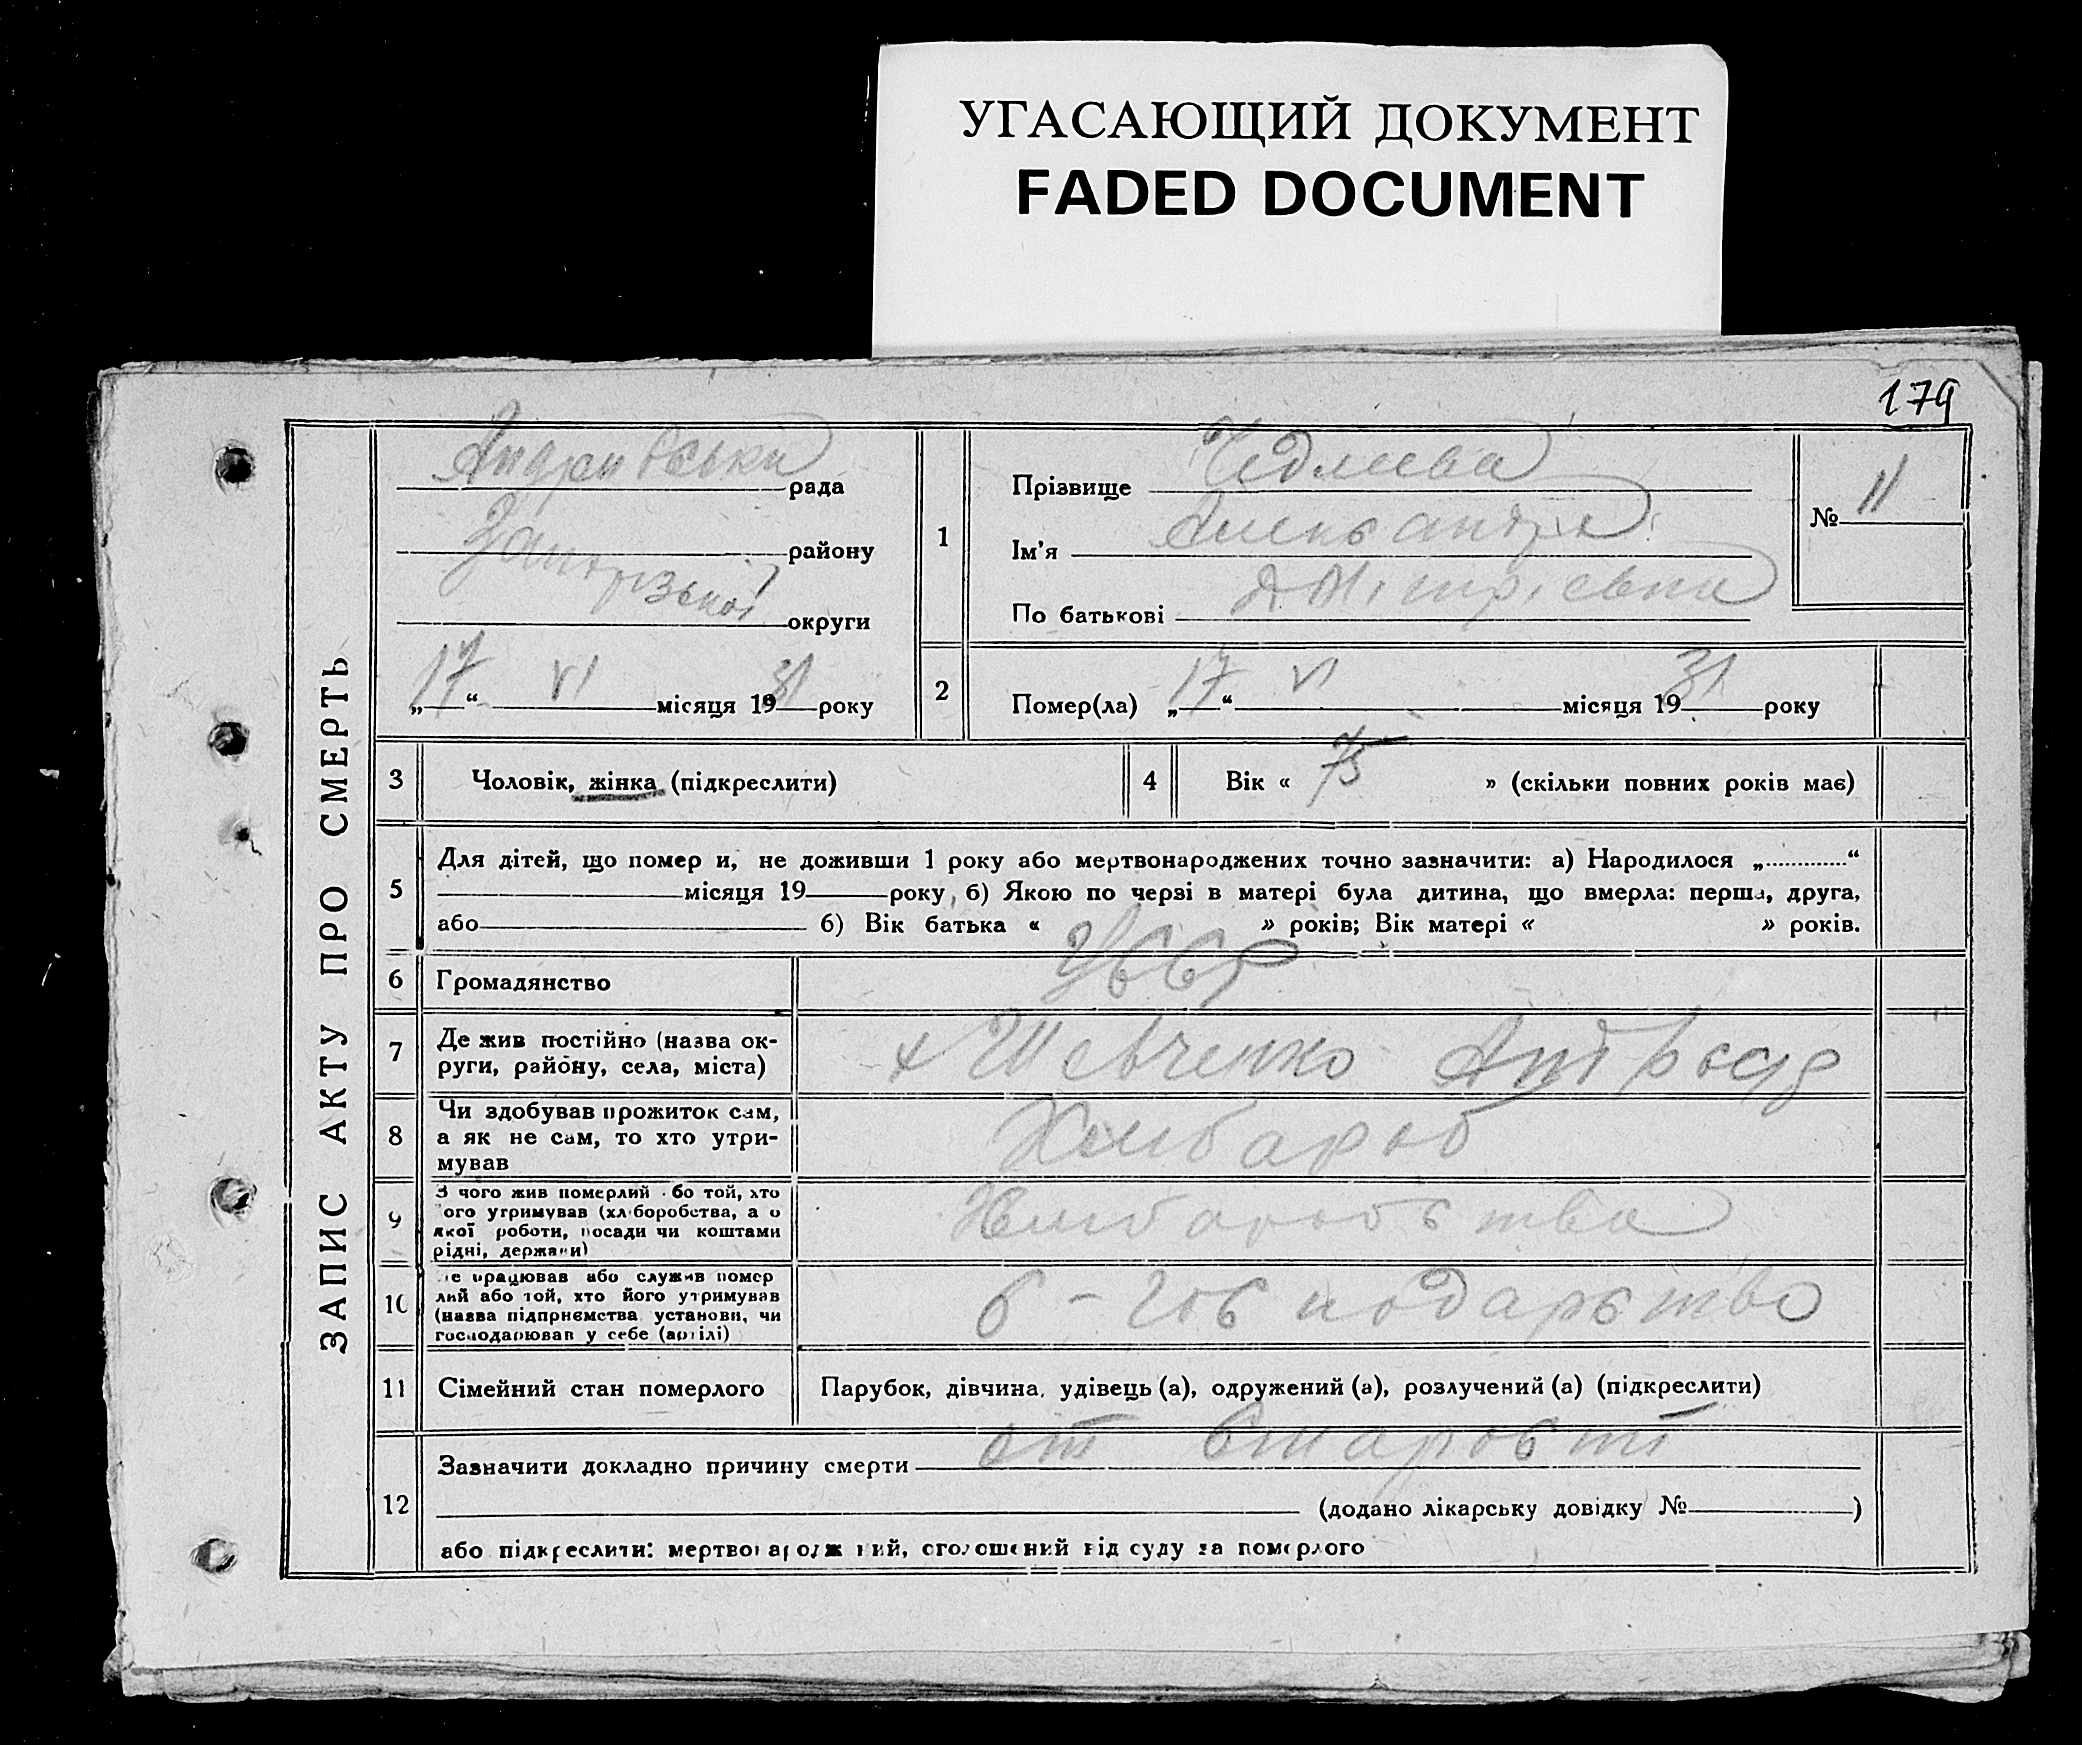 УГАСАЮЩИЙ ДОКУМЕНТ
FADED DOCUMENT
179
ЗАПИС АКТУ ПРО СМЕРТЬ
рада
району
округи
„17“ VI місяця 1931 року
1
Прізвище
Ім'я Александра
По батькові Дмітрієвна
№ 11
2
Помер(ла) „17“ VI місяця 1931 року
3 Чоловік, жінка (підкреслити)
4 Вік « 75 » (скільки повних років має)
5
Для дітей, що помер и, не доживши 1 року або мертвонароджених точно зазначити: а) Народилося „.............“
місяця 19 року, б) Якою по черзі в матері була дитина, що вмерла: перша, друга,
або б) Вік батька « » років; Вік матері « » років.
6 Громадянство УССР
7 Де жив постійно (назва ок-
руги, району, села, міста)
х Шевченко
8 Чи здобував прожиток сам,
а як не сам, то хто утри-
мував
Хлибароб
9 З чого жив померлий або той, хто
його утримував (хліборобства, а о
якої роботи, посади чи коштами
рідні, держави)
Хлибаробства
10 Де працював або служив помер
лий або той, хто його утримував
(назва підприємства установи, чи
господарював у себе (артілі)
с-господарство
11 Сімейний стан померлого Парубок, дівчина, удівець (а), одружений (а), розлучений (а) (підкреслити)
12
Зазначити докладно причину смерти от старості
(додано лікарську довідку № )
або підкреслити: мертвонароджений, оголошений від суду за померлого